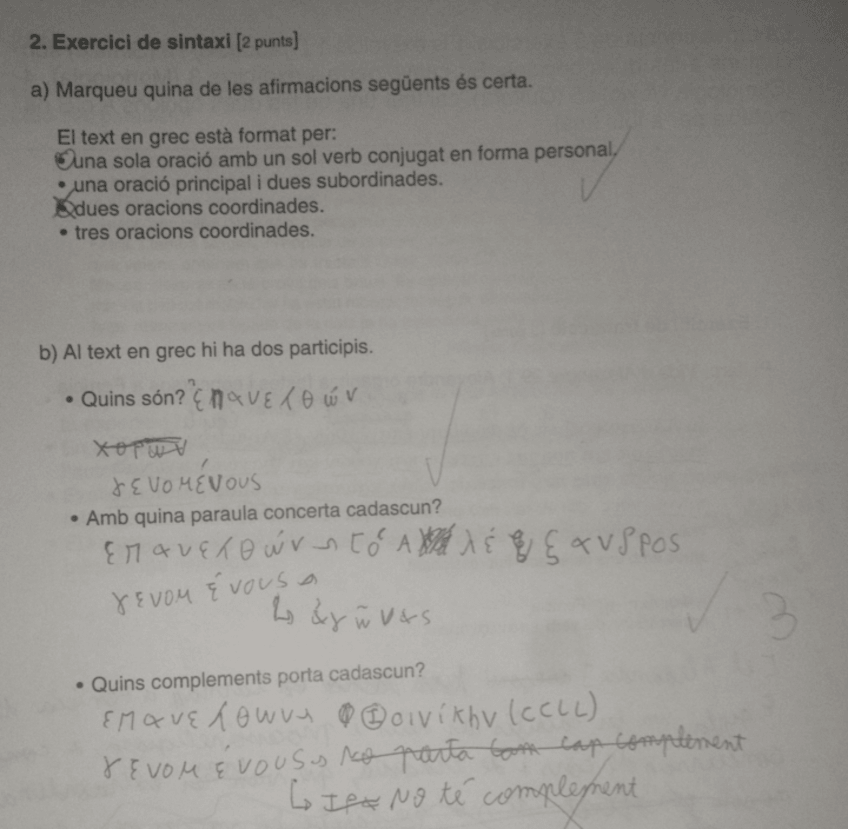 2. Exercici de sintaxi [2 punts]
a) Marqueu quina de les afirmacions següents és certa.
El text en grec està format per:
• una sola oració amb un sol verb conjugat en forma personal.
• una oració principal i dues subordinades.
• dues oracions coordinades.
• tres oracions coordinades.
b) Al text en grec hi ha dos participis.
• Quins són? ἐπανελθών
χορῶν
γενομένους
• Amb quina paraula concerta cadascun?
επανελθών → ὁ Ἀλέξανδρος
γενομένους
↳ ἀγῶνας
3
• Quins complements porta cadascun?
επανελθων → Φοινίκην (CCLL)
γενομένους → No porta cap complement
↳ No té complement